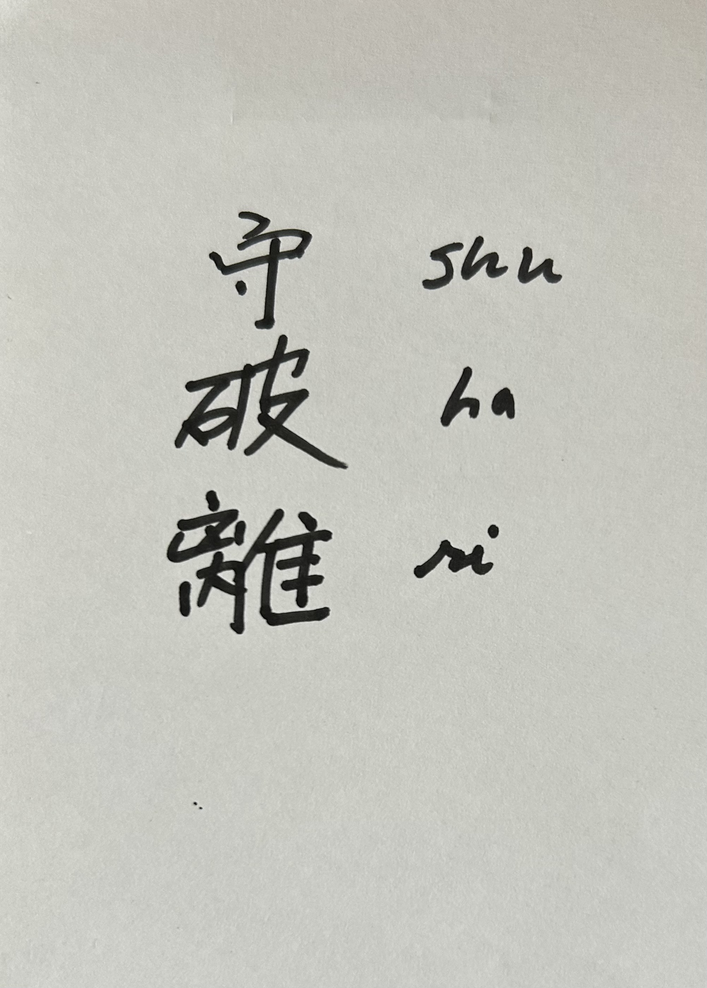 守 shu
破 ha
離 ri